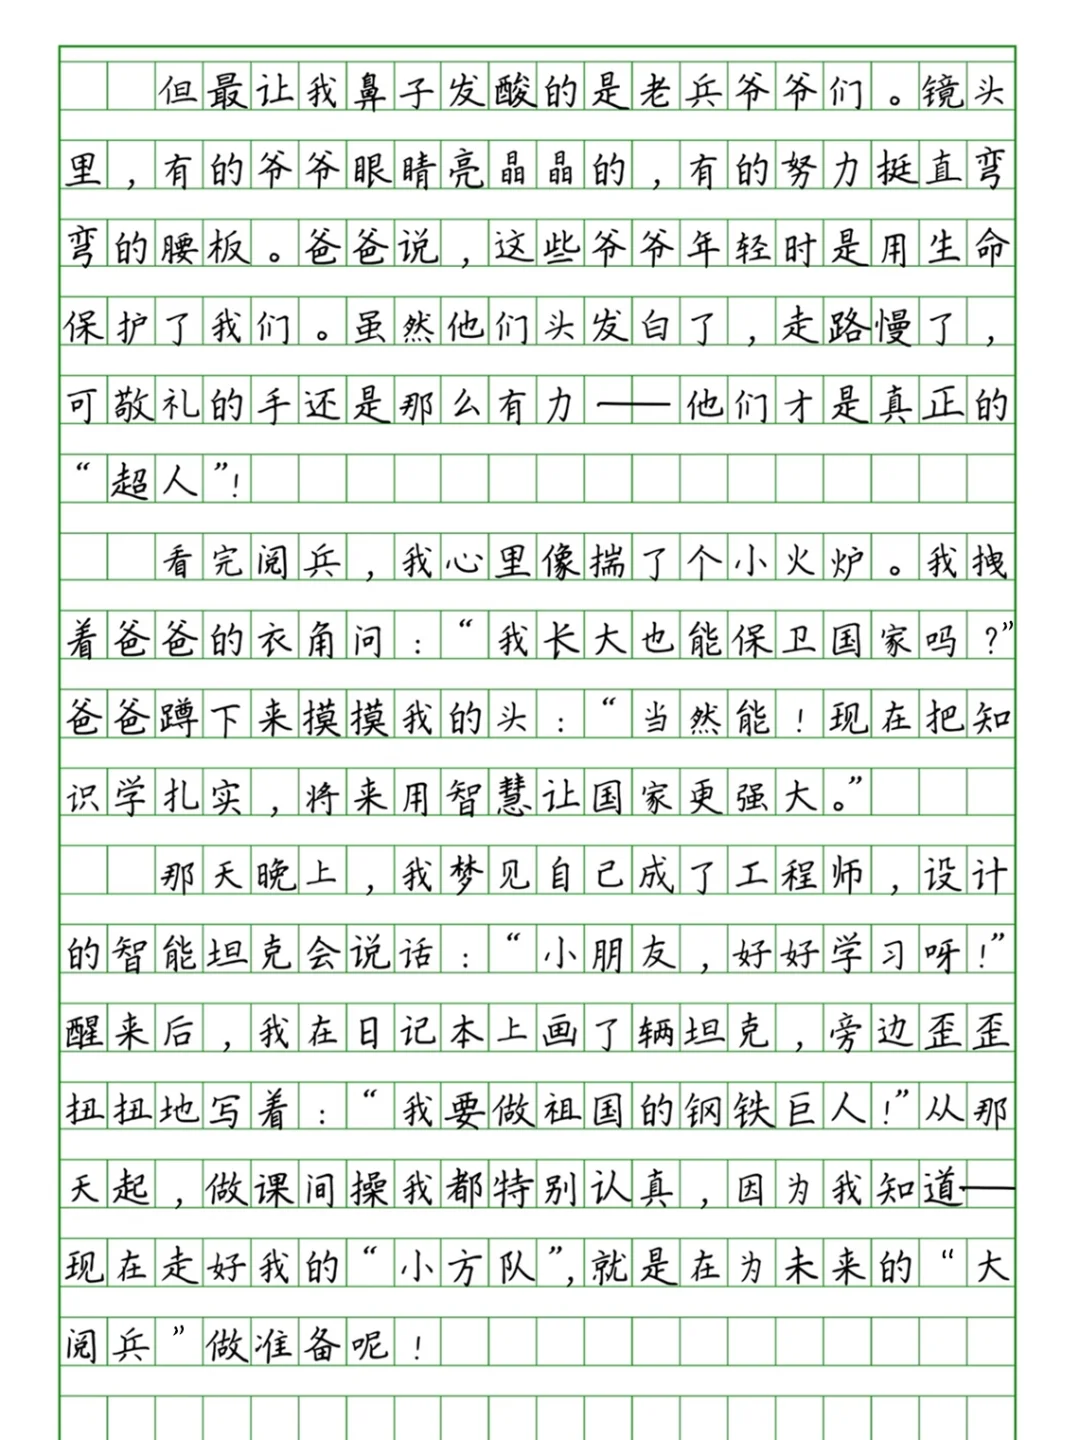 但最让我鼻子发酸的是老兵爷爷们。镜头
里，有的爷爷眼睛亮晶晶的，有的努力挺直弯
弯的腰板。爸爸说，这些爷爷年轻时是用生命
保护了我们。虽然他们头发白了，走路慢了，
可敬礼的手还是那么有力——他们才是真正的
“超人”！
看完阅兵，我心里像揣了个小火炉。我拽
着爸爸的衣角问：“我长大也能保卫国家吗？”
爸爸蹲下来摸摸我的头：“当然能！现在把知
识学扎实，将来用智慧让国家更强大。”
那天晚上，我梦见自己成了工程师，设计
的智能坦克会说话：“小朋友，好好学习呀！”
醒来后，我在日记本上画了辆坦克，旁边歪歪
扭扭地写着：“我要做祖国的钢铁巨人！”从那
天起，做课间操我都特别认真，因为我知道——
现在走好我的“小方队”，就是在为未来的“大
阅兵”做准备呢！